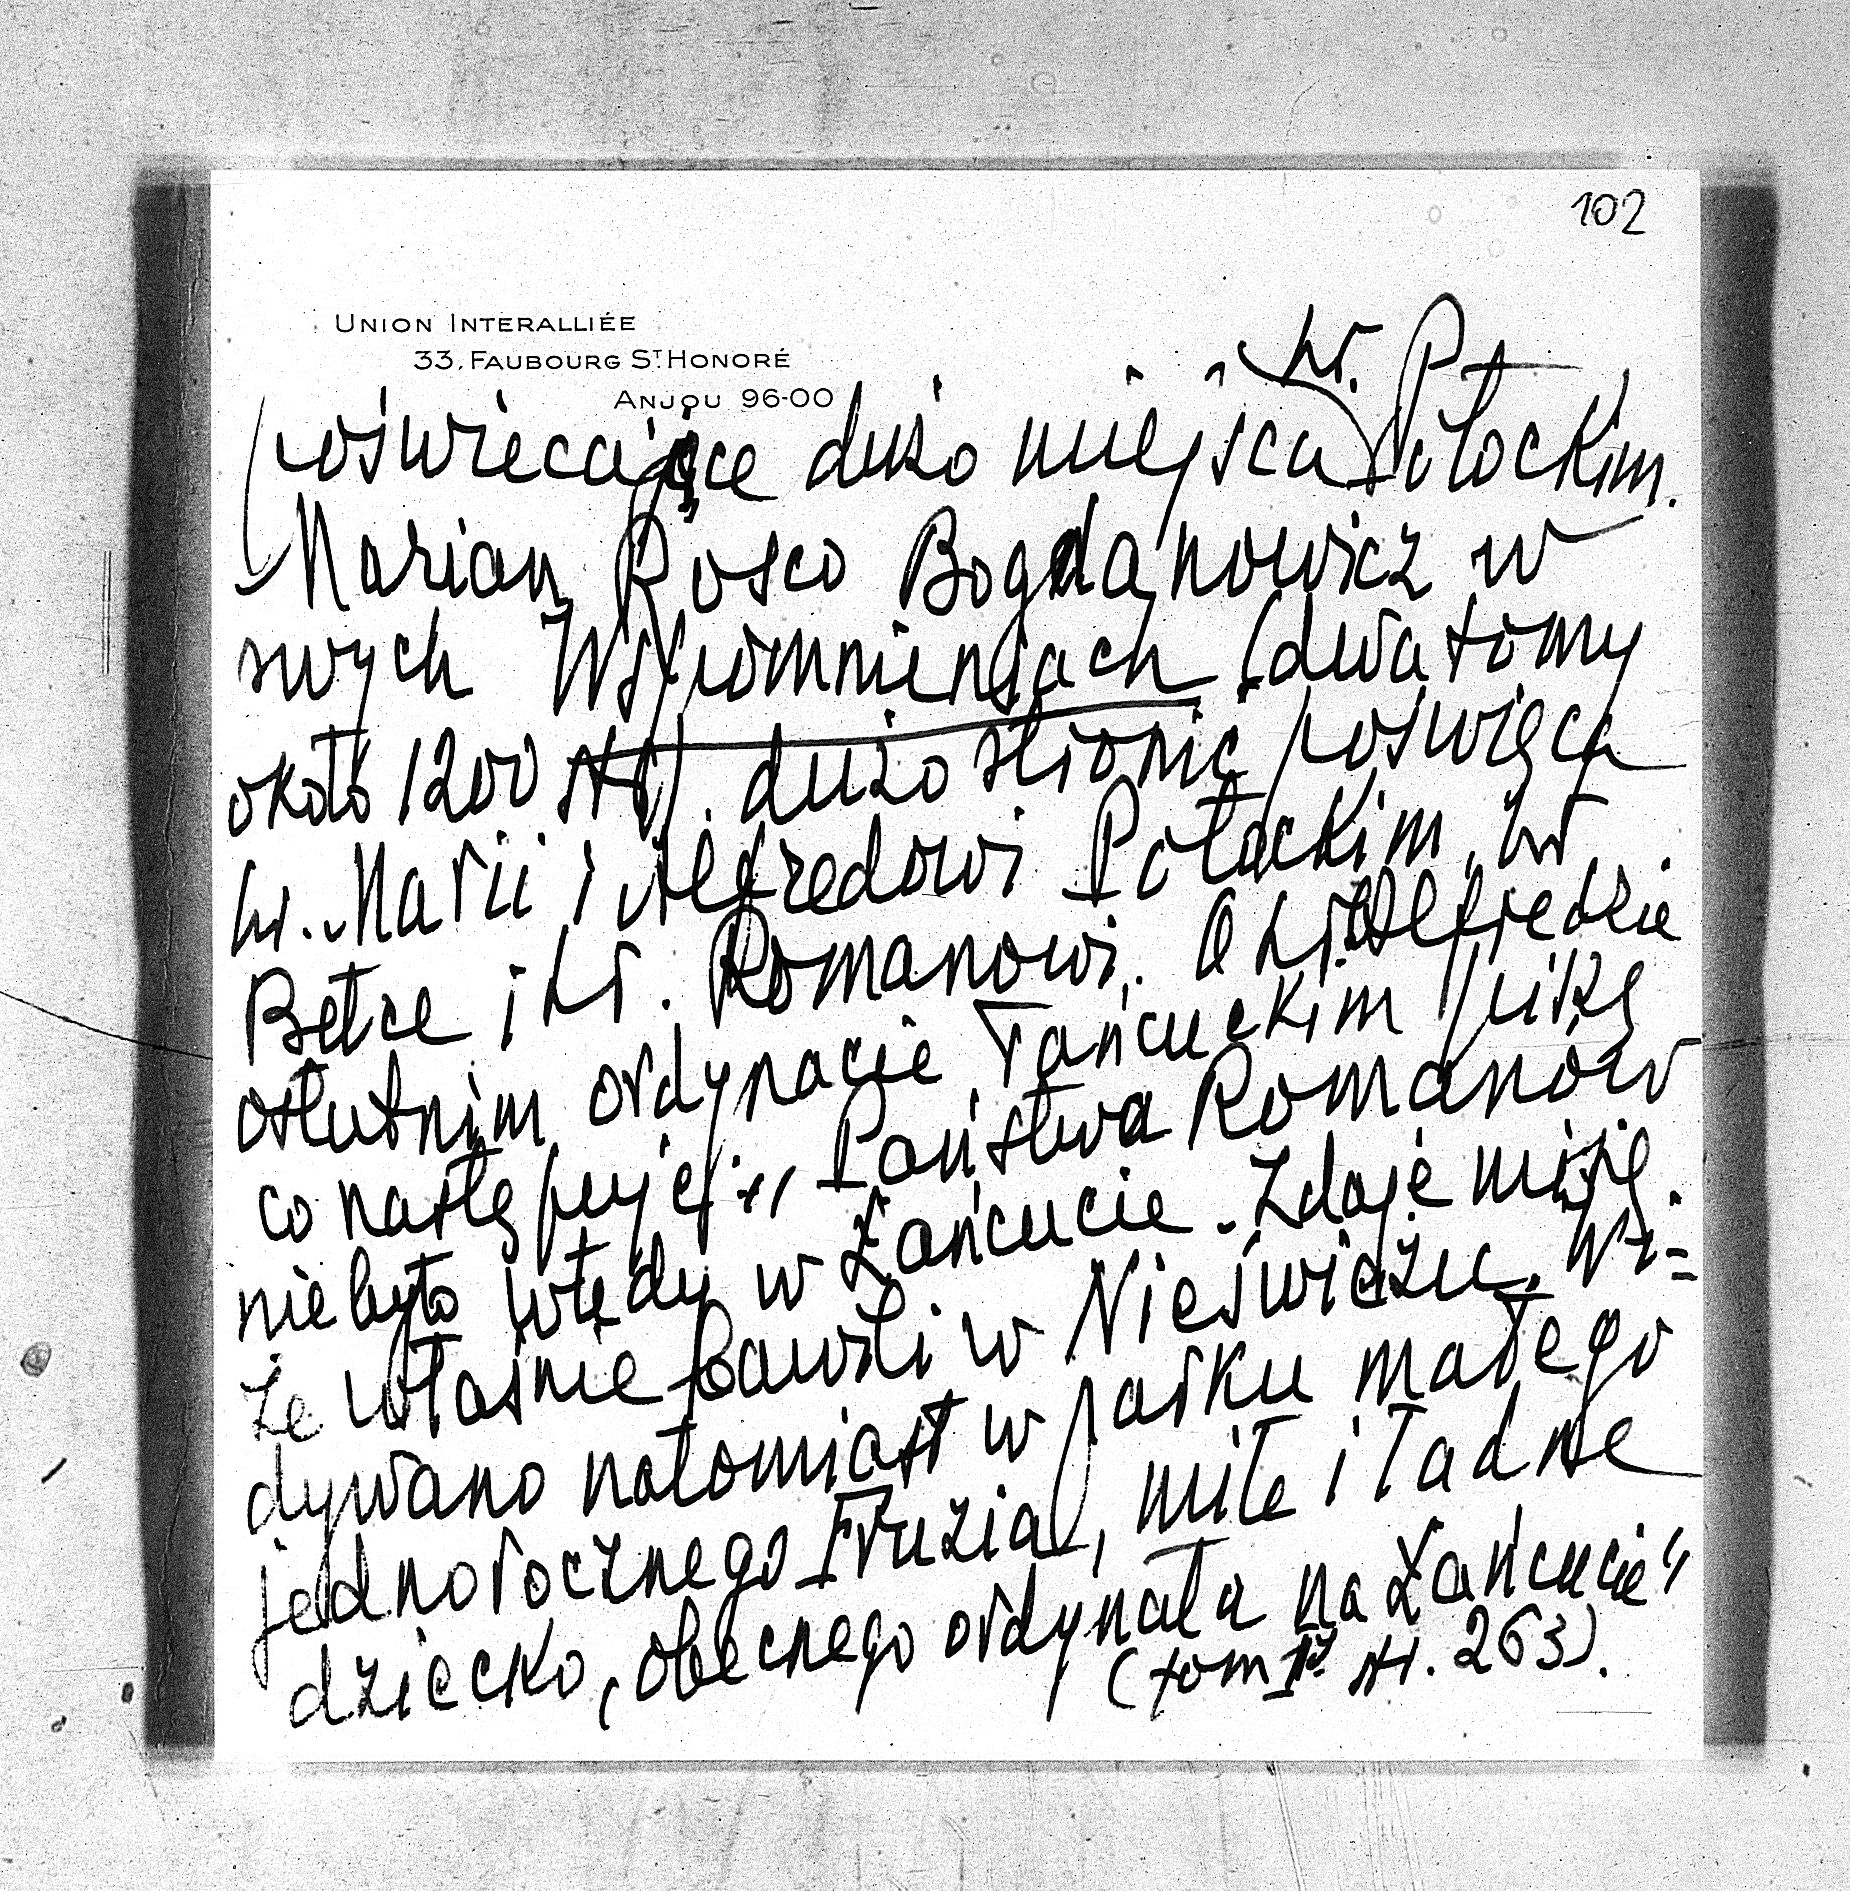 102
UNION INTERALLIÉE
33, FAUBOURG ST HONORÉ
ANJOU 96-00
hr.
poświecające dużo miejsca Potockim.
Marian Rosco Bogdanowicz w
swych Wspomnieniach (dwa tomy
około 1200 str). dużo stronic poświęca
hr. Marii i Alfredowi Potockim, hr
Betce i hr. Romanowi. O hr Alfredzie
ostatnim ordynacie Łańcuckim piszę
co następuje: „Państwa Romanów
nie było wtedy w Łańcucie. Zdaje mi się.
że właśnie bawili w Nieświeżu. Wi=
dywano natomiast w parku małego
jednorocznego Fruzia, miłe i ładne
dziecko, obecnego ordynata na Łańcucie"
(tom str. 263).